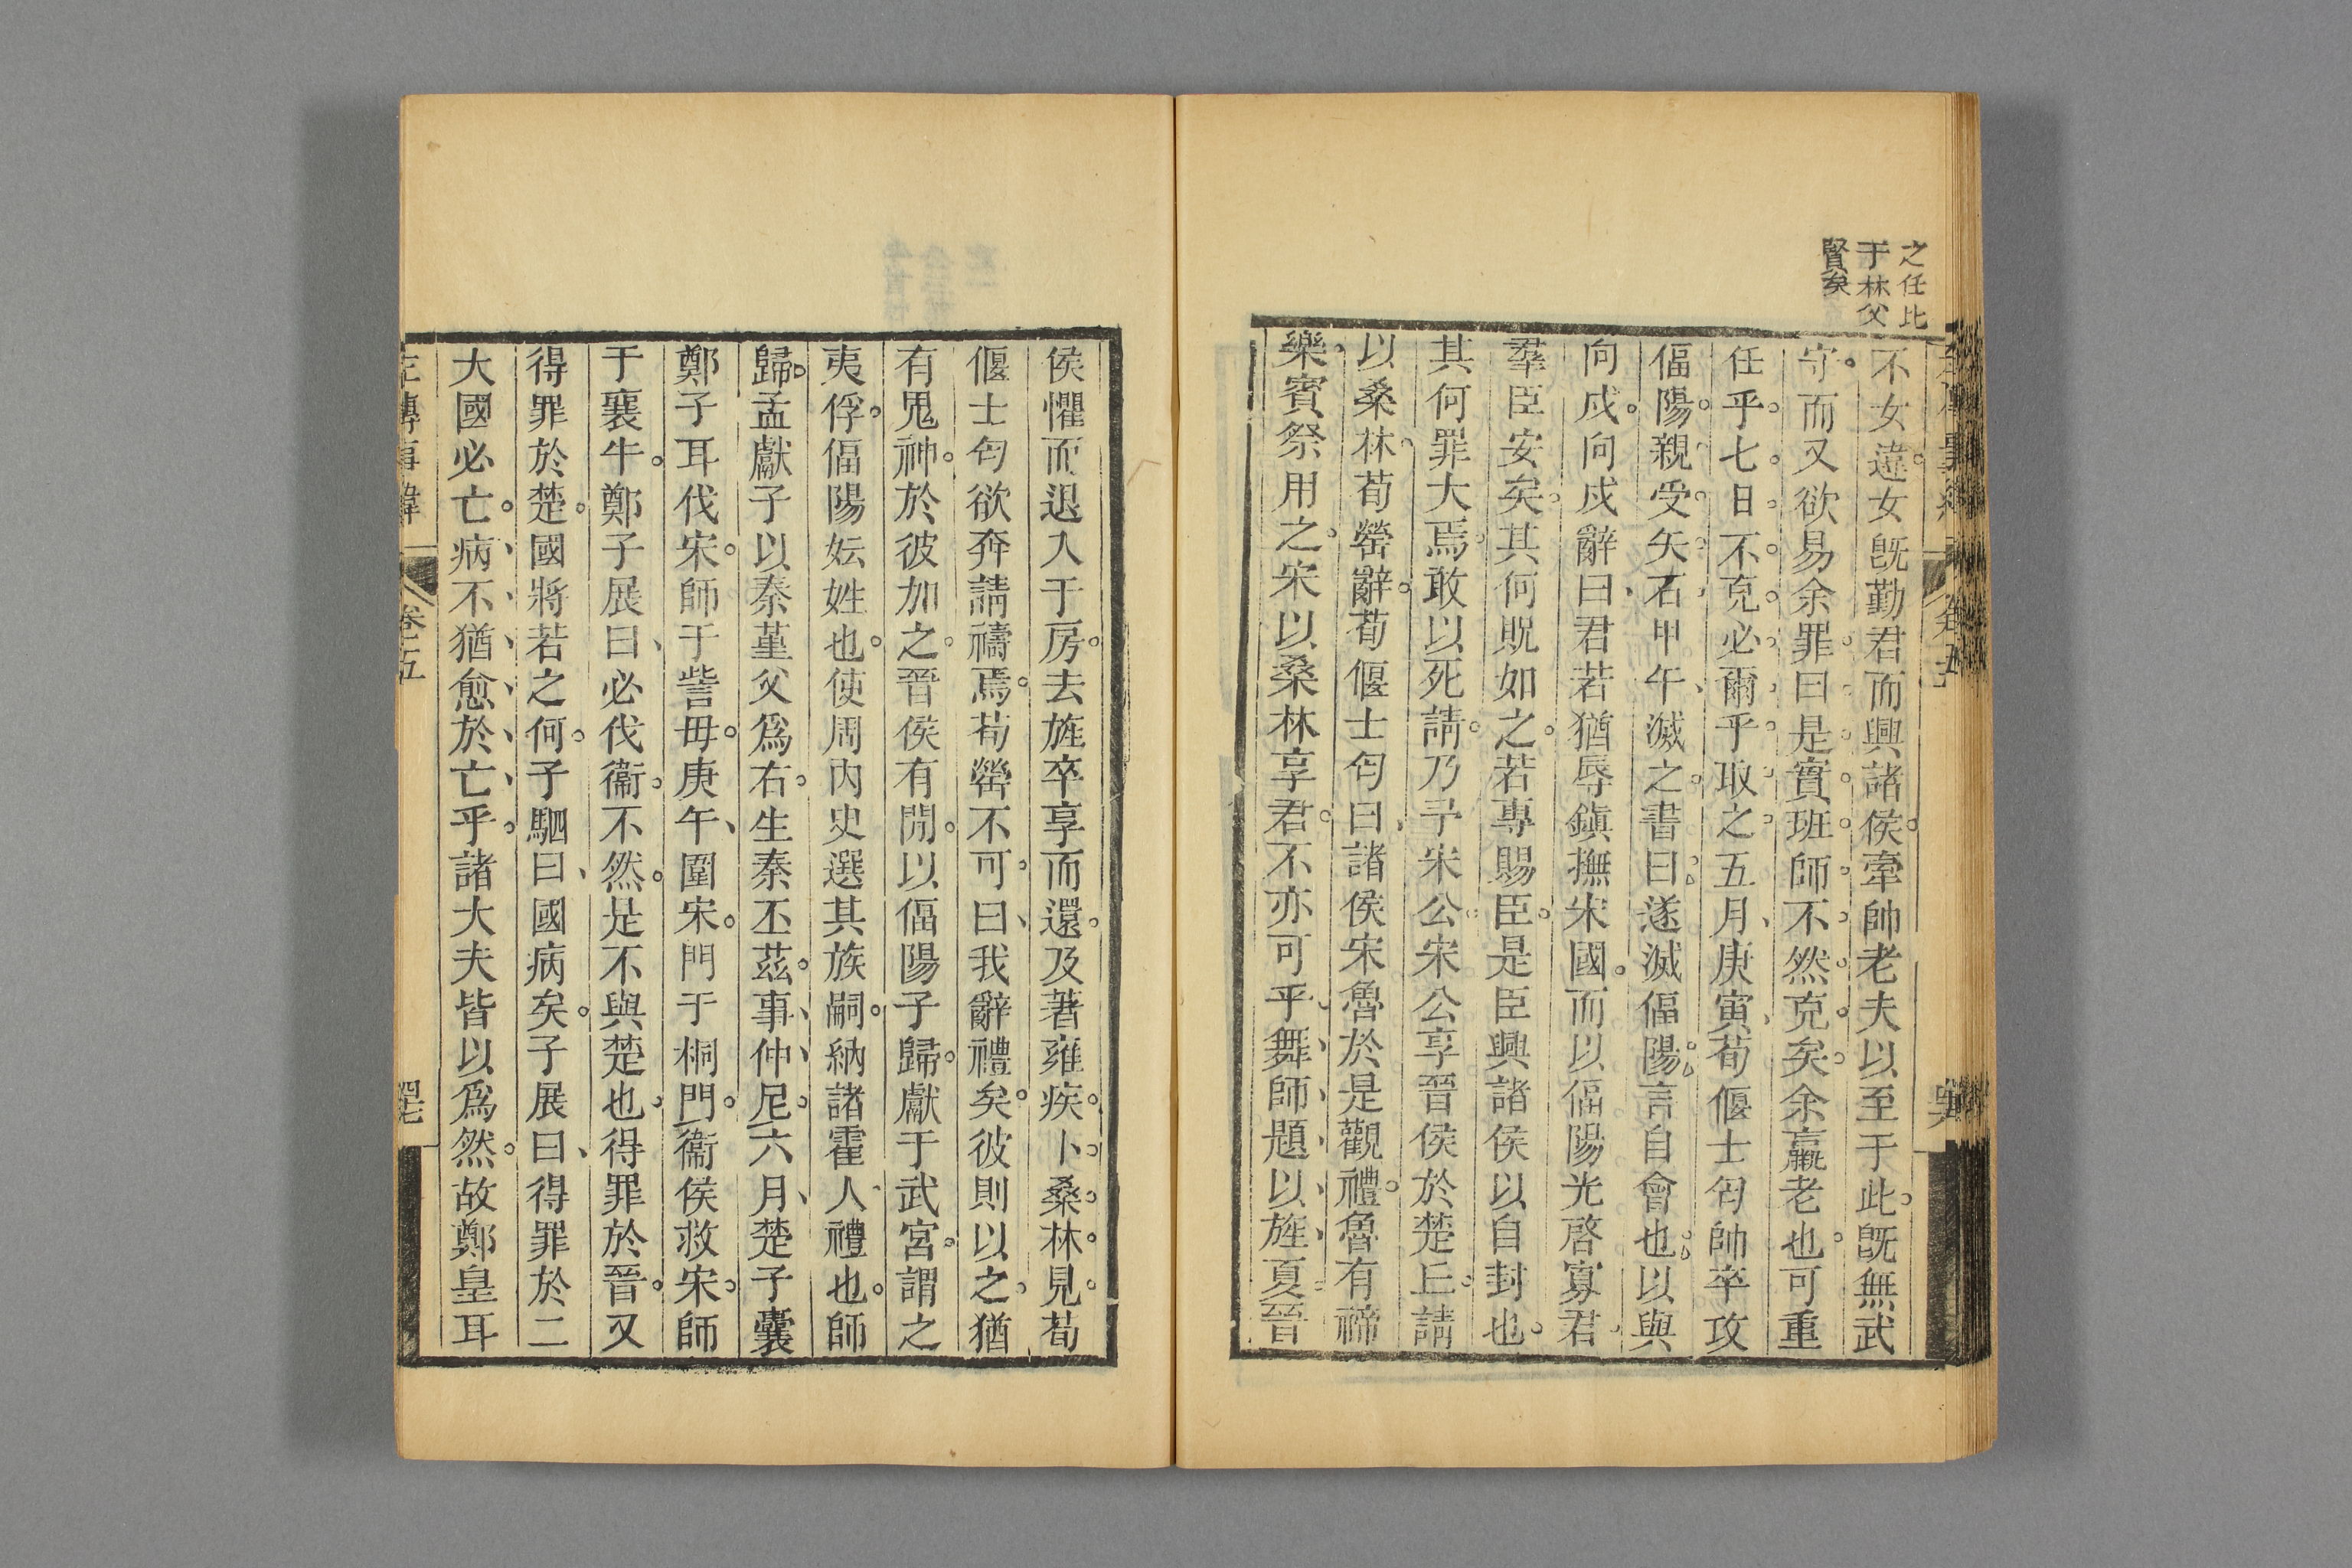 之任比
于林父
賢矣
不女違女既勤君而興諸侯牽帥老夫以至于此既無武
守而又欲易余罪曰是實班師不然克矣余羸老也可重
任乎七日不克必爾乎取之五月庚寅荀偃士匄帥卒攻
偪陽親受矢石甲午滅之書曰遂滅偪陽言自會也以與
向戌向戌辭曰君若猶辱鎭撫宋國而以偪陽光啓寡君
羣臣安矣其何貺如之若專賜臣是臣興諸侯以自封也
其何罪大焉敢以死請乃予宋公宋公享晉侯於楚丘請
以桑林荀罃辭荀偃士匄曰諸侯宋魯於是觀禮魯有禘
樂賓祭用之宋以桑林享君不亦可乎舞師題以旌夏晉
侯懼而退入于房去旌卒享而還及著雍疾卜桑林見荀
偃士匄欲奔請禱焉荀罃不可曰我辭禮矣彼則以之猶
有鬼神於彼加之晉侯有閒以偪陽子歸獻于武宮謂之
夷俘偪陽妘姓也使周內史選其族嗣納諸霍人禮也師
歸孟獻子以秦堇父爲右生秦丕茲事仲尼六月楚子囊
鄭子耳伐宋師于訾毋庚午圍宋門于桐門衞侯救宋師
于襄牛鄭子展曰必伐衞不然是不與楚也得罪於晉又
得罪於楚國將若之何子駟曰國病矣子展曰得罪於二
大國必亡病不猶愈於亡乎諸大夫皆以爲然故鄭皇耳
左傳事緯
卷五